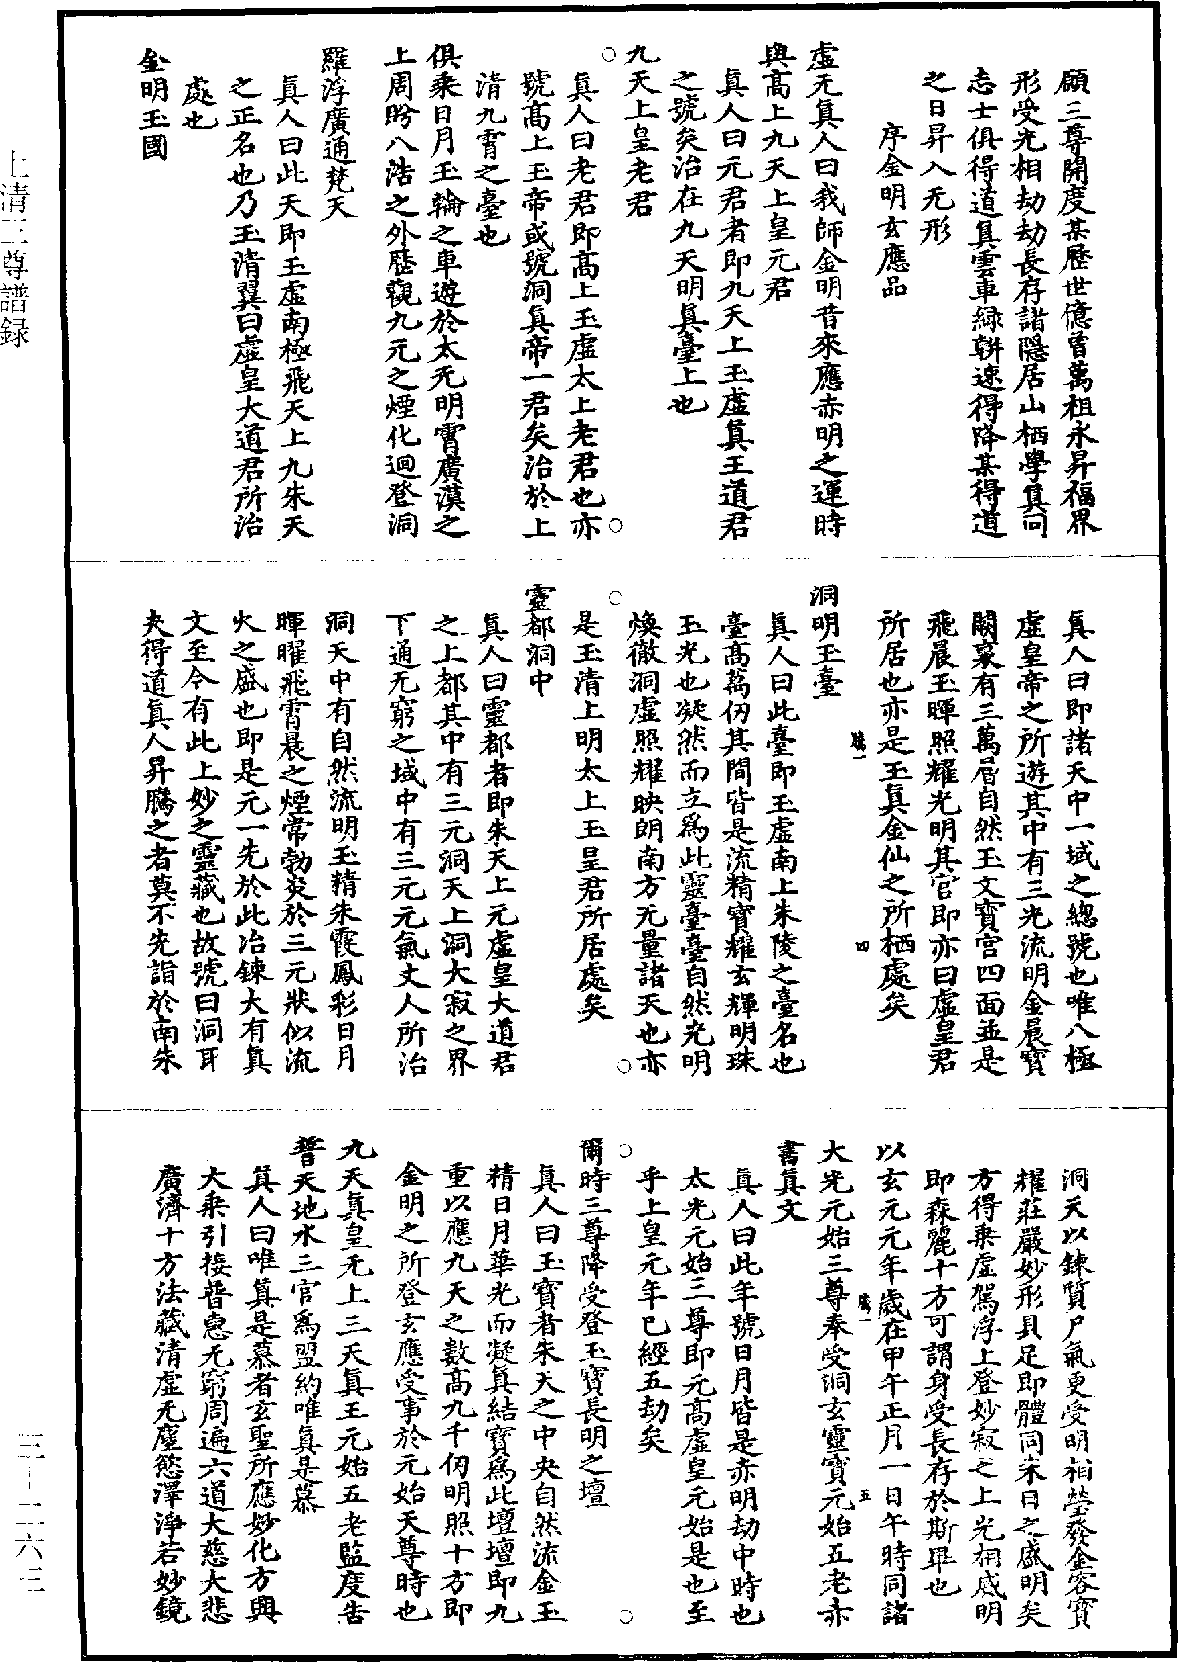 願三尊開度某歷世億曾萬祖永昇福界
形受光相劫劫長存諸隱居山栖學真同
志士俱得道真雲車綠軿速得降某得道
之日昇入无形
序金明玄應品
虛无真人曰我師金明昔來應赤明之運時
與高上九天上皇元君
真人曰元君者即九天上玉虛真王道君
之號矣治在九天明真臺上也
九天上皇老君
真人曰老君即高上玉虛太上老君也亦
號高上玉帝或號洞真帝一君矣治於上
清九霄之臺也
俱乘日月玉輪之車遊於太无明霄廣漠之
上周盻八浩之外歷觀九元之煙化迴登洞
羅浮廣通梵天
真人曰此天即玉虛南極飛天上九朱天
之正名也乃玉清翼曰虛皇大道君所治
處也
金明玉國
真人曰即諸天中一域之總號也唯八極
虛皇帝之所遊其中有三光流明金晨寶
闕臺有三萬層自然玉文寶宮四面並是
飛晨玉暉照耀光明其官即亦曰虛皇君
所居也亦是玉真金仙之所栖處矣
四
洞明玉臺
真人曰此臺即玉虛南上朱陵之臺名也
臺高萬仞其間皆是流精寶耀玄輝明珠
玉光也凝然而立為此靈臺臺自然光明
煥徹洞虛照耀映朗南方无量諸天也亦
是玉清上明太上玉皇君所居處矣
靈都洞中
真人曰靈都者即朱天上元虛皇大道君
之上都其中有三元洞天上洞大寂之界
下通无窮之域中有三元元氣丈人所治
洞天中有自然流明玉精朱霞鳳彩日月
暉曜飛霄晨之煙常勃炎於三元狀似流
火之盛也即是元一先於此冶鍊大有真
文至今有此上妙之靈藏也故號曰洞耳
夫得道真人昇騰之者莫不先詣於南朱
洞天以鍊質尸氣更受明相瑩發金容寶
耀莊嚴妙形具足即體同朱日之盛明矣
方得乘虛駕浮上登妙寂之上光相盛明
即森麗十方可謂身受長存於斯畢也
以玄元元年歲在甲午正月一日午時同諸
五
大光元始三尊奉受洞玄靈寶元始五老赤
書真文
真人曰此年號日月皆是赤明劫中時也
太光元始三尊即元高虛皇元始是也至
乎上皇元年已經五劫矣
爾時三尊降受登玉寶長明之壇
真人曰玉寶者朱天之中央自然流金玉
精日月華光而凝真結寶為此壇壇即九
重以應九天之數高九千仞明照十方即
金明之所登玄應受事於元始天尊時也
九天真皇无上三天真王元始五老監度告
誓天地水三官為盟約唯真是慕
真人曰唯真是慕者玄聖所應妙化方與
大乘引接普惠无窮周遍六道大慈大悲
廣濟十方法藏清虛无塵慾澤淨若妙鏡
上清三尊譜録
三—二六三